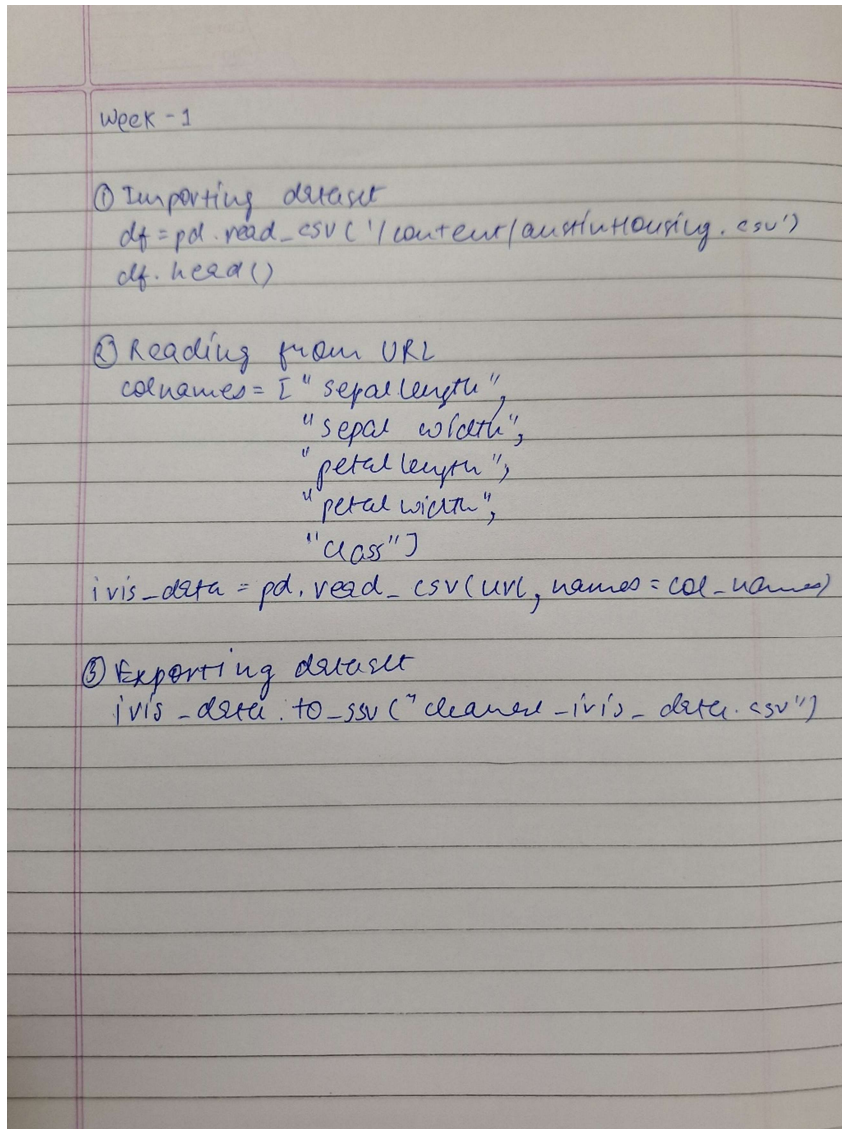 Week - 1
① Importing dataset
df = pd.read_csv('/content/austinHousing.csv')
df.head()
② Reading from URL
colnames = ["sepal length",
"sepal width",
"petal length",
"petal width",
"class"]
iris_data = pd.read_csv(url, names = col_names)
③ Exporting dataset
iris_data.to_ssv("cleaned_iris_data.csv")